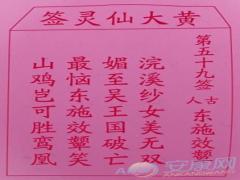 黄大仙灵签
第五十九签 古人 东施效颦
浣溪纱女美无双
媚至吴王国破亡
最恼东施效颦笑
山鸡岂可胜鸾凰
安康网